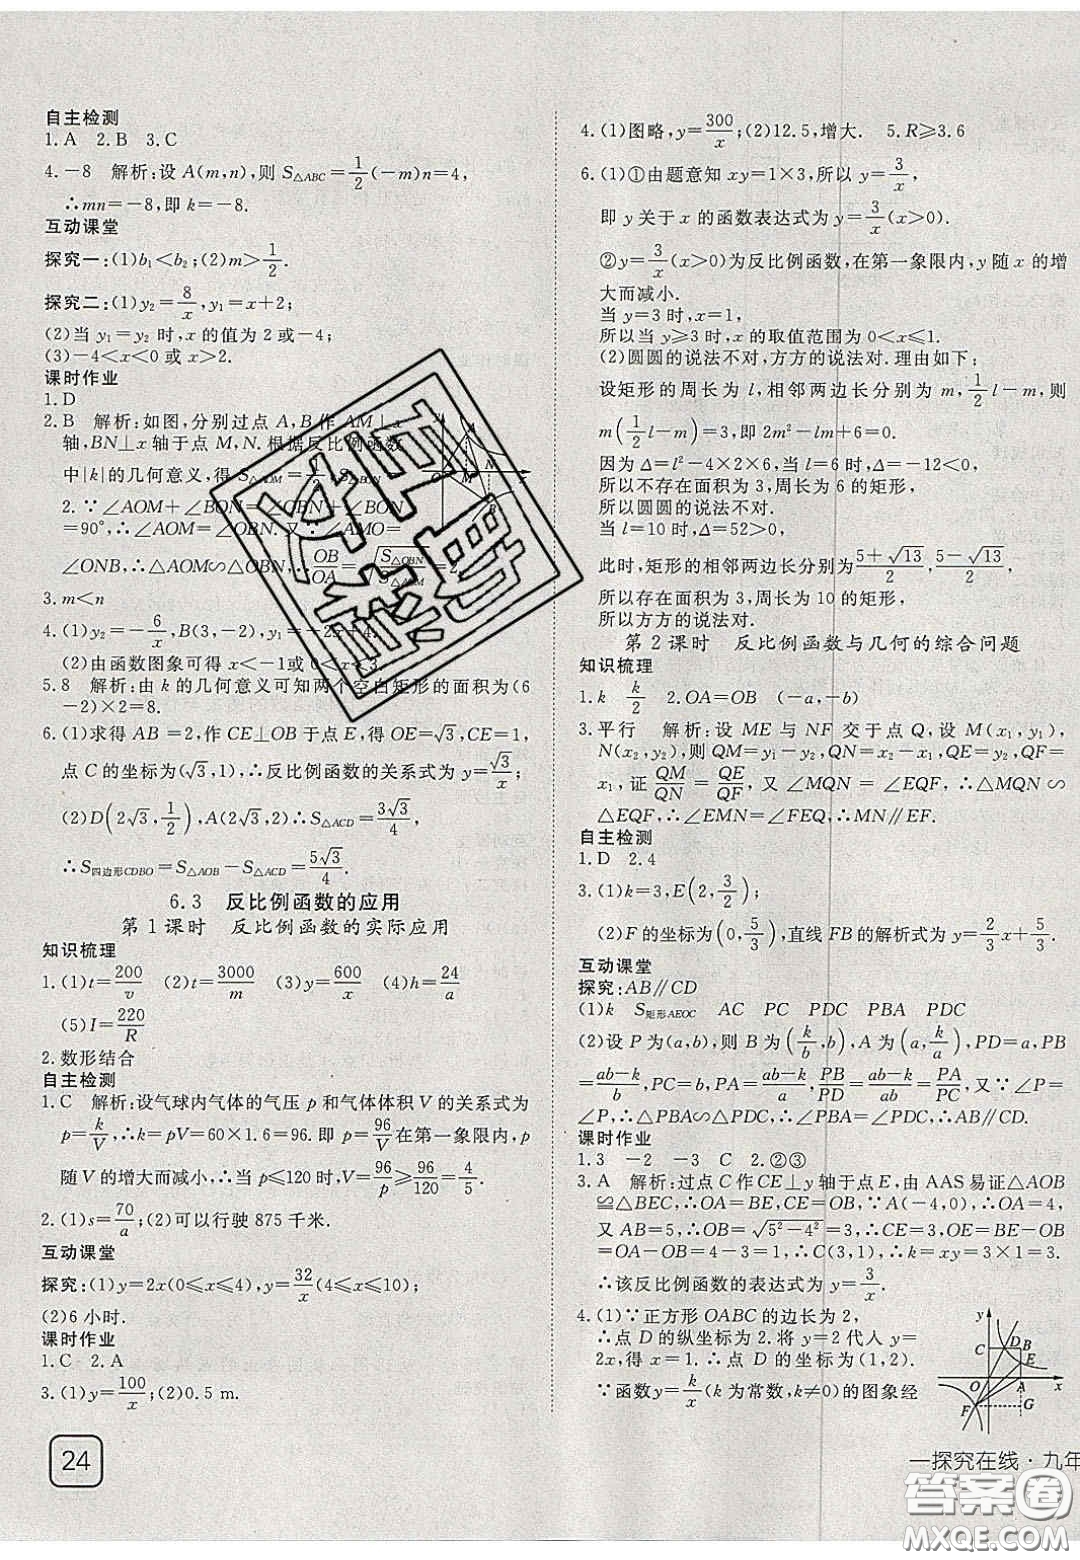 自主检测
1.A 2.B 3.C
4.-8 解析:设A(m,n),则S△ABC=1/2(-m)n=4,
∴mn=-8,即k=-8.
互动课堂
探究一:(1)b₁<b₂;(2)m>1/2.
探究二:(1)y₂=8/x,y₁=x+2;
(2)当y₁=y₂时,x的值为2或-4;
(3)-4<x<0或x>2.
课时作业
1.D
2.B 解析:如图,分别过点A,B作AM⊥x
轴,BN⊥x轴于点M,N.根据反比例函数
中|k|的几何意义,得S△AOM=1/2,S△BON
2.∵∠AOM+∠BON=
=90°,∴∠AOM=∠OBN.又∵∠AMO=
∠ONB,∴△AOM∽△OBN,∴OB/OA=√(S△OBN/S△AOM)=2.
3.m<n
4.(1)y₂=-6/x,B(3,-2),k=
(2)由函数图象可得x<-1或0<x<3.
5.8 解析:由k的几何意义可知两个空白矩形的面积为(6
-2)×2=8.
6.(1)求得AB=2,作CE⊥OB于点E,得OE=√3,CE=1,
点C的坐标为(√3,1),∴反比例函数的关系式为y=√3/x;
(2)D(2√3,1/2),A(2√3,2)∴S△ACD=3√3/4,
∴S四边形CDBO=S△AOB-S△ACD=5√3/4.
6.3 反比例函数的应用
第1课时 反比例函数的实际应用
知识梳理
1.(1)t=200/v (2)t=3000/m (3)y=600/x (4)h=24/a
(5)I=220/R
2.数形结合
自主检测
1.C 解析:设气球内气体的气压p和气体体积V的关系式为
p=k/V,∴k=pV=60×1.6=96.即p=96/V在第一象限内,p
随V的增大而减小,∴当p≤120时,V=96/p≥96/120=4/5
2.(1)s=70/a;(2)可以行驶875千米.
互动课堂
探究:(1)y=2x(0≤x≤4),y=32/x(4≤x≤10);
(2)6小时.
课时作业
1.C 2.A
3.(1)y=100/x;(2)0.5 m.
24
4.(1)图略,y=300/x;(2)12.5,增大. 5.R≥3.6
6.(1)①由题意知xy=1×3,所以y=3/x,
即y关于x的函数表达式为y=3/x(x>0).
②y=3/x(x>0)为反比例函数,在第一象限内,y随x的增
大而减小.
当y=3时,x=1,
所以当y≥3时,x的取值范围为0<x≤1.
(2)圆圆的说法不对,方方的说法对.理由如下:
设矩形的周长为l,相邻两边长分别为m,1/2l-m,则
m(1/2l-m)=3,即2m²-lm+6=0.
因为Δ=l²-4×2×6,当l=6时,Δ=-12<0,
所以不存在面积为3,周长为6的矩形,
所以圆圆的说法不对.
当l=10时,Δ=52>0,
此时,矩形的相邻两边长分别为(5+√13)/2,(5-√13)/2,
所以存在面积为3,周长为10的矩形,
所以方方的说法对.
第2课时 反比例函数与几何的综合问题
知识梳理
1.k k/2 2.OA=OB (-a,-b)
3.平行 解析:设ME与NF交于点Q,设M(x₁,y₁),
N(x₂,y₂),则QM=y₁-y₂,QN=x₂-x₁,QE=y₂,QF=
x₁,证QM/QN=QE/QF,又∠MQN=∠EQF,∴△MQN∽
△EQF,∴∠MNE=∠FEQ,∴MN∥EF.
自主检测
1.D 2.4
3.(1)k=3,E(2,3/2);
(2)F的坐标为(0,5/3),直线FB的解析式为y=2/3x+5/3.
互动课堂
探究:AB∥CD
(1)k S矩形AEOC AC PC PDC PBA PDC
(2)设P为(a,b),则B为(k/b,b),A为(a,k/a),PD=a,PB=
(ab-k)/b,PC=b,PA=(ab-k)/a,PB/PD=(ab-k)/ab=PA/PC,又∵∠P=
∠P,∴△PBA∽△PDC,∴∠PBA=∠PDC,∴AB∥CD.
课时作业
1.3 -2 -3 C 2.②③
3.A 解析:过点C作CE⊥y轴于点E,由AAS易证△AOB
≌△BEC,∴OA=BE,CE=OB,∵A(-4,0),∴OA=4,
又AB=5,∴OB=√(5²-4²)=3,∴CE=3,OE=BE-OB
=OA-OB=4-3=1,∴C(3,1),∴k=xy=3×1=3.
∴该反比例函数的表达式为y=3/x.
4.(1)∵正方形OABC的边长为2,
∴点D的纵坐标为2.将y=2代人y=
2x,得x=1.∴点D的坐标为(1,2).
∵函数y=k/x(k为常数,k≠0)的图象经
y
C D B
E
O A x
F G
一探究在线·九年
答案圈
MXQE.COM